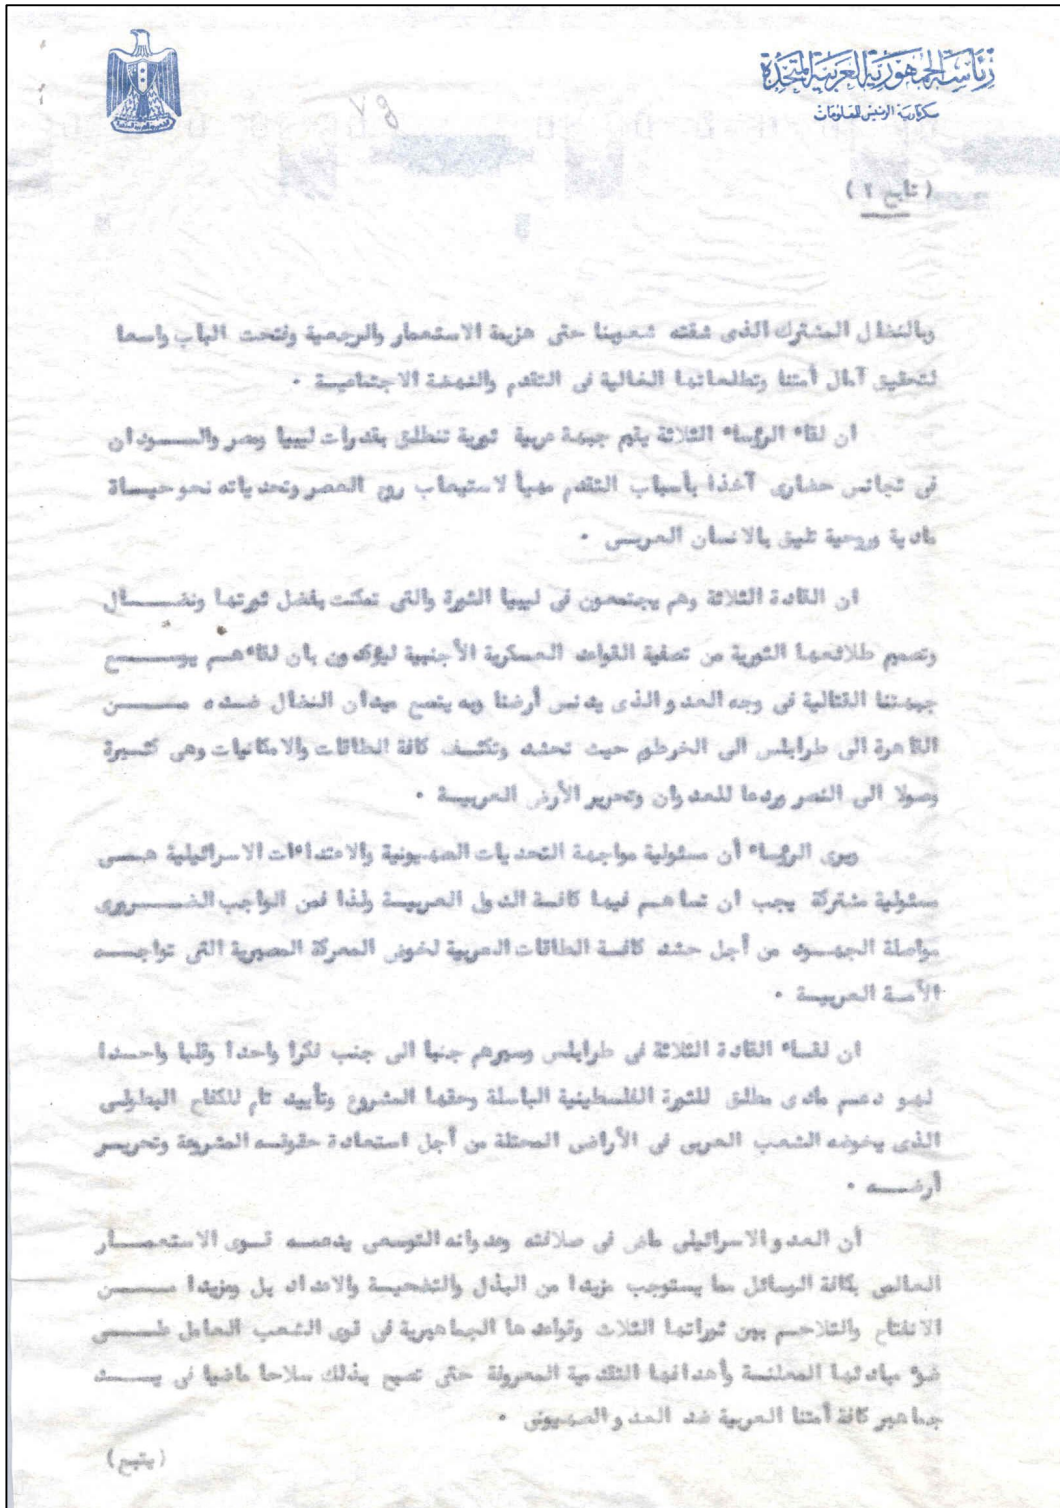 رئاسة الجمهورية العربية المتحدة
سكرتارية الرئيس للمعلومات
( تابع ٢ )
وبالنضال المشترك الذى شقته شعبينا حتى هزيمة الاستعمار والرجعية وفتحت الباب واسعا
لتحقيق آمال أمتنا وتطلعاتها الغالية فى التقدم والنهضة الاجتماعية ٠
ان لقاء الرؤساء الثلاثة يقيم جبهة عربية ثورية تنطلق بقدرات ليبيا ومصر والســـودان
فى تجانس حضارى آخذا بأسباب التقدم مهيأ لاستيعاب روح العصر وتحدياته نحو حيــاة
مادية وروحية تليق بالانسان العربـى ٠
ان القادة الثلاثة وهم يجتمعون فى ليبيا الثورة والتى تمكنت بفضل ثورتها ونضـــال
وتصميم طلائعها الثورية من تصفية القواعد العسكرية الأجنبية ليؤكدون بان لقاءهـم يوســـع
جبهتنا القتالية فى وجه العدو الذى يدنس أرضنا وبه يتسع ميدان النضال ضـده مـــن
القاهرة الى طرابلس الى الخرطوم حيث تحشد وتكثـف كافة الطاقات والامكانيات وهى كثـيرة
وصولا الى النصر وردعا للعدوان وتحرير الأرض العربيـة ٠
ويرى الرؤساء أن مسئولية مواجهة التحديات الصهيونية والاعتداءات الاسرائيلية هـــى
مسئولية مشتركة يجب ان تساهـم فيها كافـة الدول العربيـة ولذا فمن الواجب الضـــرورى
مواصلة الجهـود من أجل حشد كافـة الطاقات العربية لخوض المعركة المصيرية التى تواجـــه
الأمـة العربيـة ٠
ان لقـاء القادة الثلاثة فى طرابلس وسيرهم جنبا الى جنب فكرا واحدا وقلبا واحـدا
لهـو دعـم مادى مطلق للثورة الفلسطينية الباسلة وحقها المشروع وتأييد تام للكفاح البطولـى
الذى يخوضه الشعب العربى فى الأراضى المحتلة من أجل استعادة حقوقـه المشروعة وتحريـر
أرضـــه ٠
أن العدو الاسرائيلى ماض فى صلافته وعدوانه التوسعى يدعمـه قـوى الاستعمـــار
العالمى بكافة الوسائل مما يستوجب مزيدا من البذل والتضحيـة والاعداد بل ومزيدا مـــن
الانفتاح والتلاحـم بين ثوراتها الثلاث وقواعدها الجماهيرية فى قوى الشعب العامل علـــى
ضوء مبادئها المعلنـة وأهدافها التقدمية المعروفة حتى تصبح بذلك سلاحا ماضيا فى يـــد
جماهير كافة أمتنا العربية ضد العدو الصهيونى ٠
(يتبع)